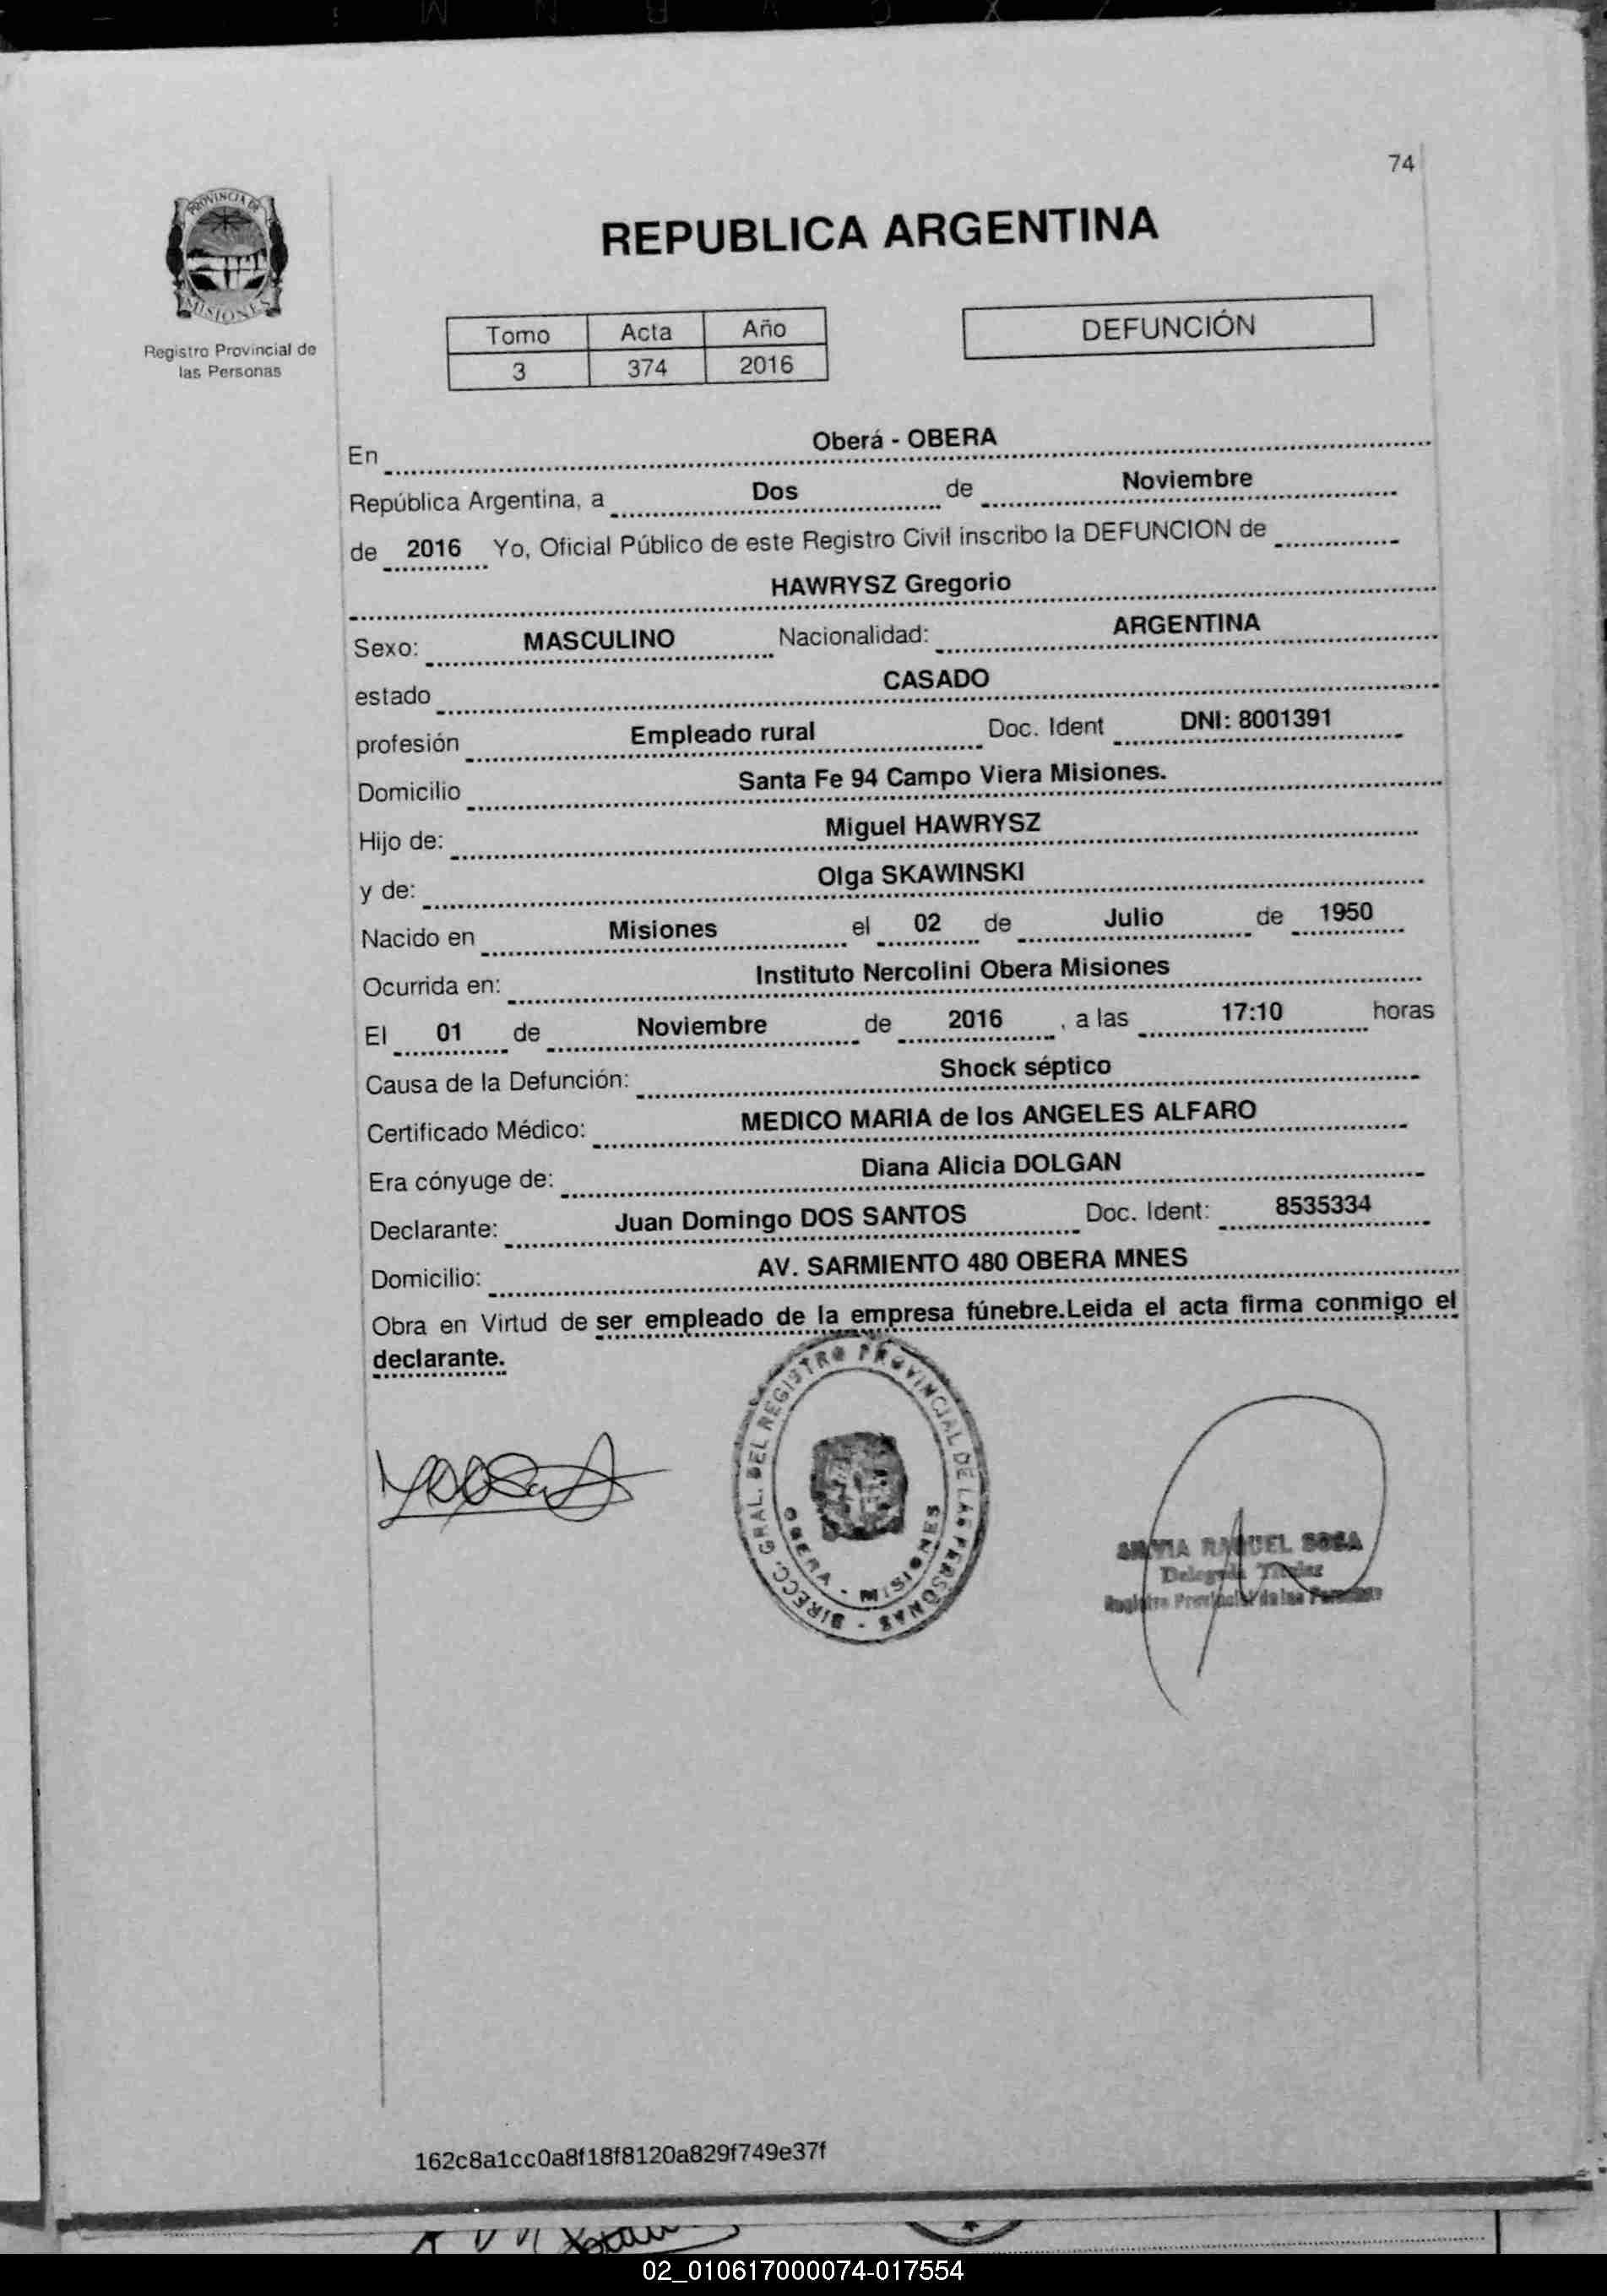 74
PROVINCIA DE
MISIONES
Registro Provincial de
las Personas
REPUBLICA ARGENTINA
Tomo Acta Año
3 374 2016
DEFUNCIÓN
En Oberá - OBERA
República Argentina, a Dos de Noviembre
de 2016 Yo, Oficial Público de este Registro Civil inscribo la DEFUNCION de
HAWRYSZ Gregorio
Sexo: MASCULINO Nacionalidad: ARGENTINA
estado CASADO
profesión Empleado rural Doc. Ident DNI: 8001391
Domicilio Santa Fe 94 Campo Viera Misiones.
Hijo de: Miguel HAWRYSZ
y de: Olga SKAWINSKI
Nacido en Misiones el 02 de Julio de 1950
Ocurrida en: Instituto Nercolini Obera Misiones
El 01 de Noviembre de 2016 , a las 17:10 horas
Causa de la Defunción: Shock séptico
Certificado Médico: MEDICO MARIA de los ANGELES ALFARO
Era cónyuge de: Diana Alicia DOLGAN
Declarante: Juan Domingo DOS SANTOS Doc. Ident: 8535334
Domicilio: AV. SARMIENTO 480 OBERA MNES
Obra en Virtud de ser empleado de la empresa fúnebre.Leida el acta firma conmigo el
declarante.
DIRECC. GRAL. DEL REGISTRO PROVINCIAL DE LAS PERSONAS -
OBERA - MISIONES
SILVIA RAQUEL SOSA
Delegada Titular
Registro Provincial de las Personas
162c8a1cc0a8f18f8120a829f749e37f
02_010617000074-017554